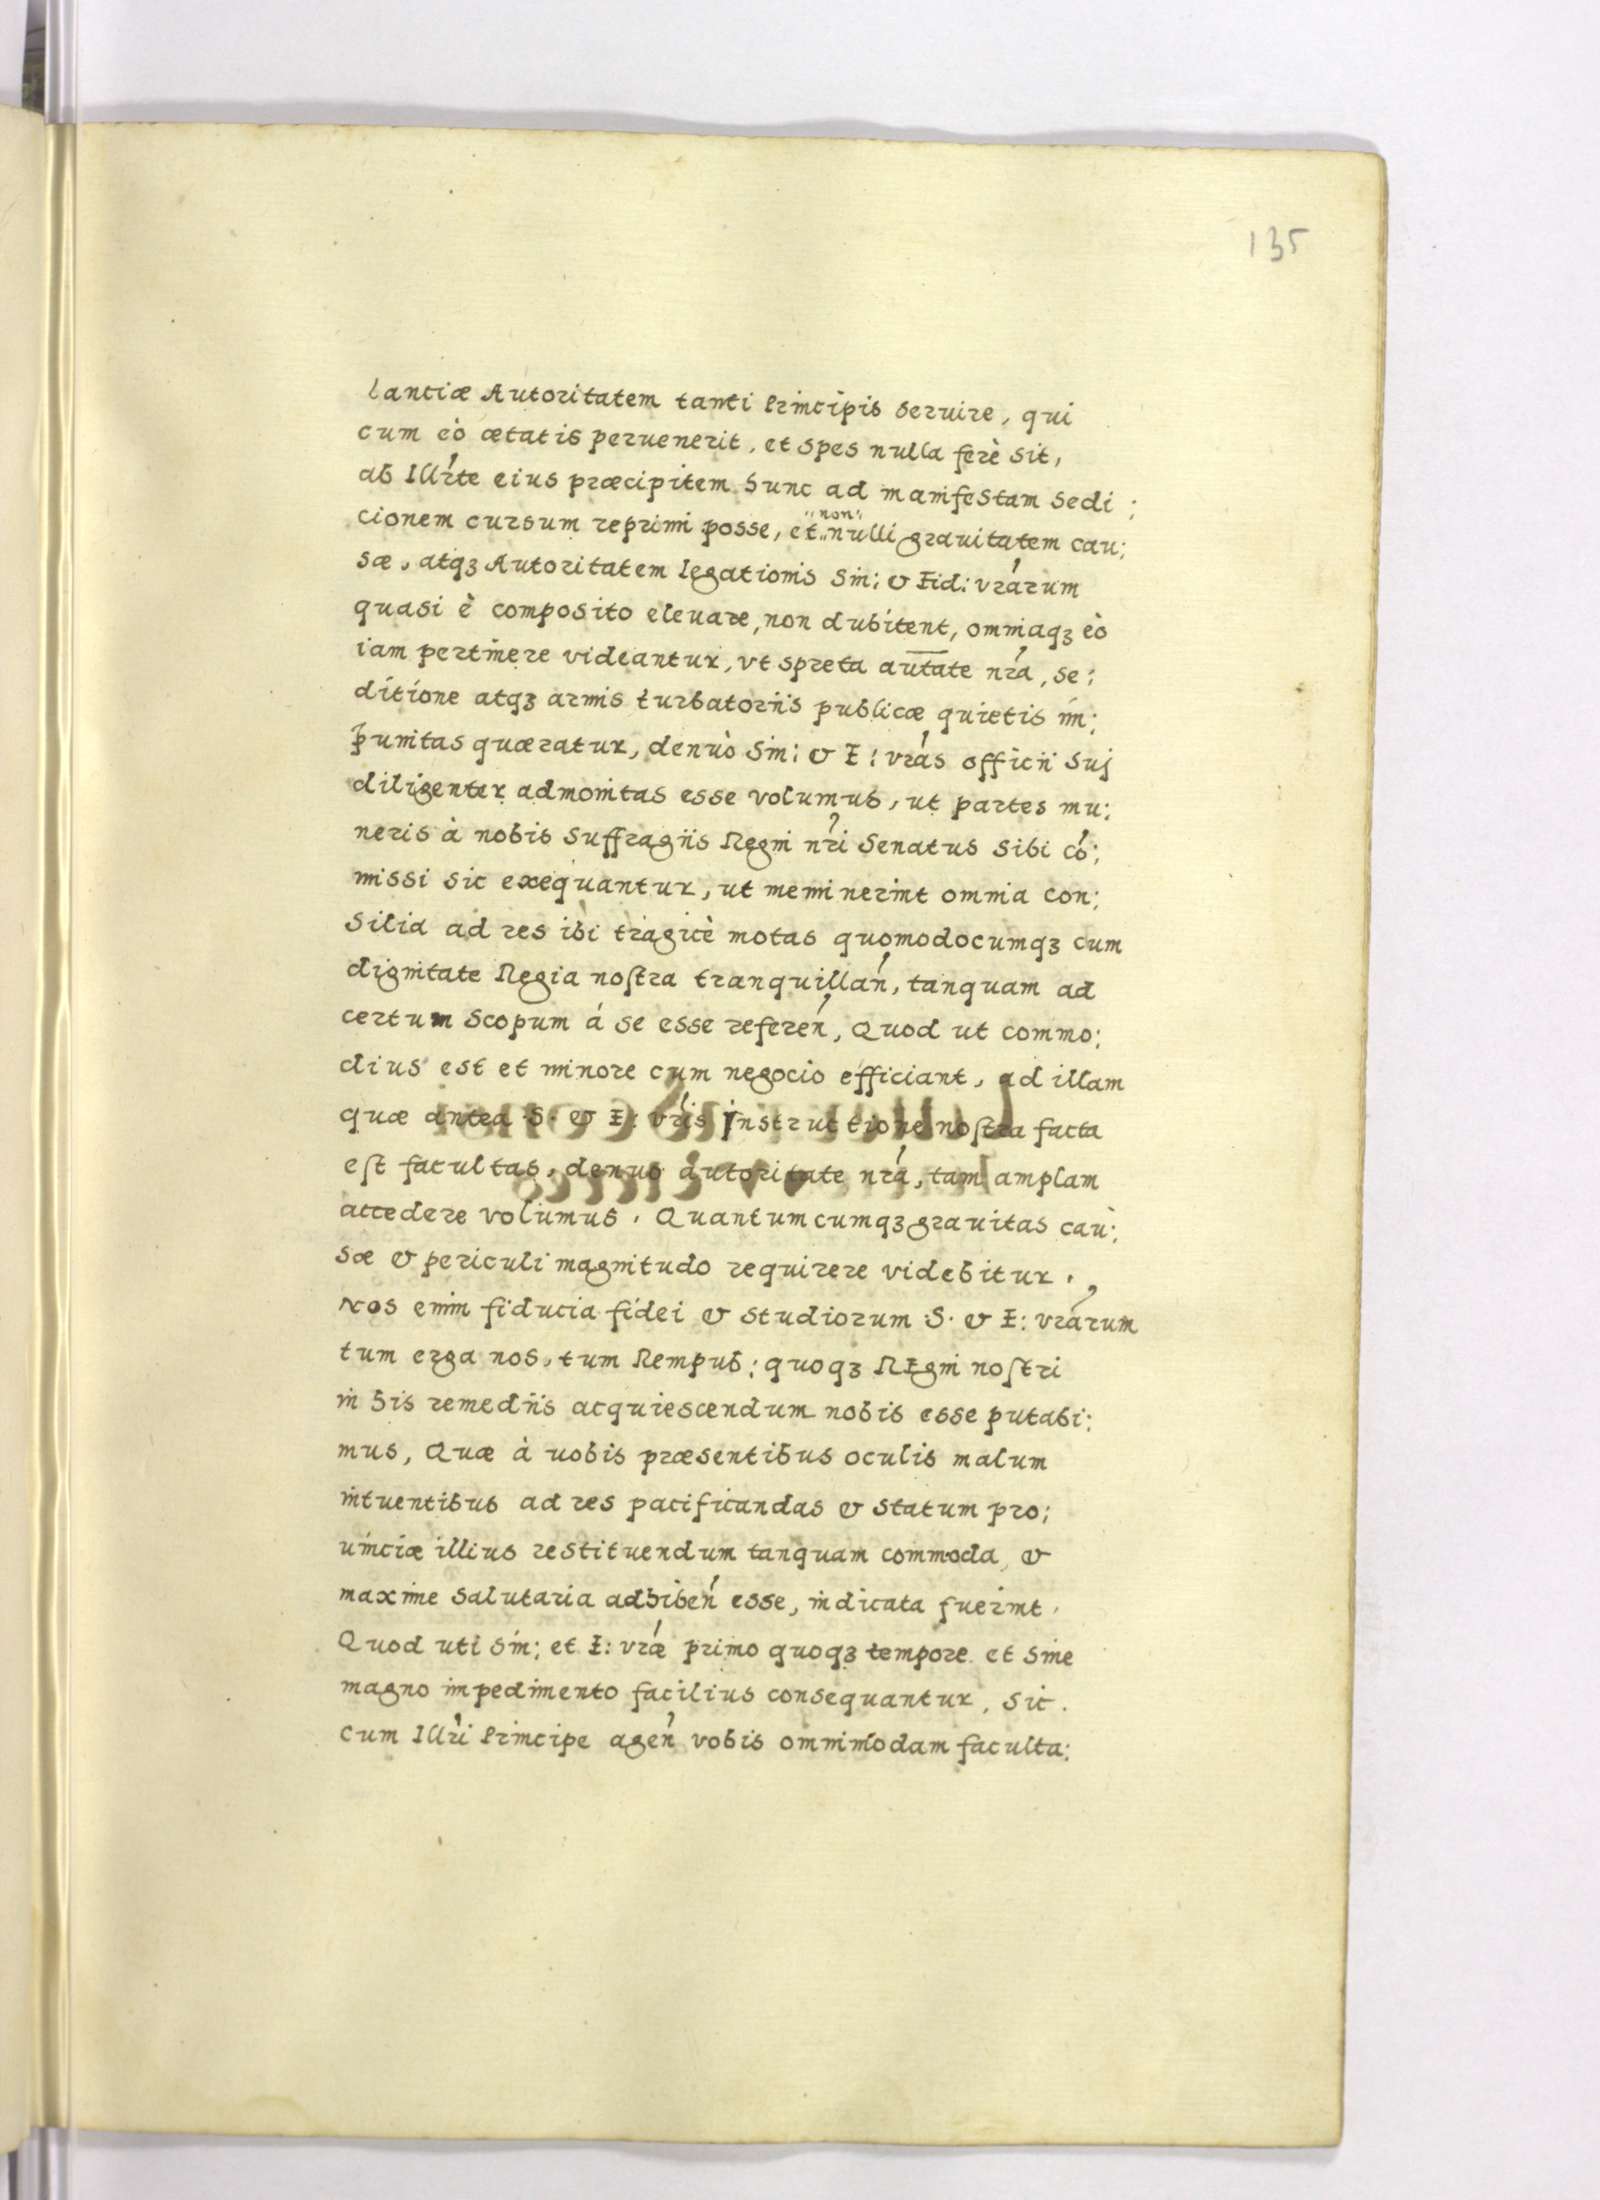 135
lantiæ Autoritatem tanti Principis seruire, qui
cum eò ætatis peruenerit, et spes nulla ferè sit,
ab Illrte eius præcipitem hunc ad manifestam sedi:
cionem cursum reprimi posse, et non nulli grauitatem cau:
sæ, atqꝫ Autoritatem legationis Sin: & Fid: vrarum
quasi è composito eleuare, non dubitent, omniaqꝫ eò
iam pertinere videantur, vt spreta autate nra, se:
ditione atqꝫ armis turbatoriis publicæ quietis im:
punitas quæratur, denuò Sin: & F: vras officii suj
diligenter admonitas esse volumus, ut partes mu:
neris à nobis suffragiis Regni nri Senatus sibi co:
missi sic exequantur, ut meminerint omnia con:
silia ad res ibi tragicè motas quomodocumqꝫ cum
dignitate Regia noſtra tranquillan, tanquam ad
certum scopum á se esse referen, Quod ut commo:
dius est et minore cum negocio efficiant, ad illam
quæ antea S. & F: vris instructione noſtra facta
eſt facultas, denuo autoritate nra, tam amplam
accedere volumus. Quantumcumqꝫ grauitas cau:
sæ & periculi magnitudo requirere videbitur.
Nos enim fiducia fidei & studiorum S. & F: vrarum
tum erga nos, tum Rempub: quoqꝫ REgni noſtri
in his remediis acquiescendum nobis esse putabi:
mus, Quæ à uobis præsentibus oculis malum
intuentibus ad res pacificandas & statum pro:
uinciæ illius restituendum tanquam commoda, &
maxime salutaria adhiben esse, indicata fuerint.
Quod uti Sin: et F: vræ primo quoqꝫ tempore et sine
magno impedimento facilius consequantur, sic.
cum Illri Principe agen vobis omnimodam faculta: